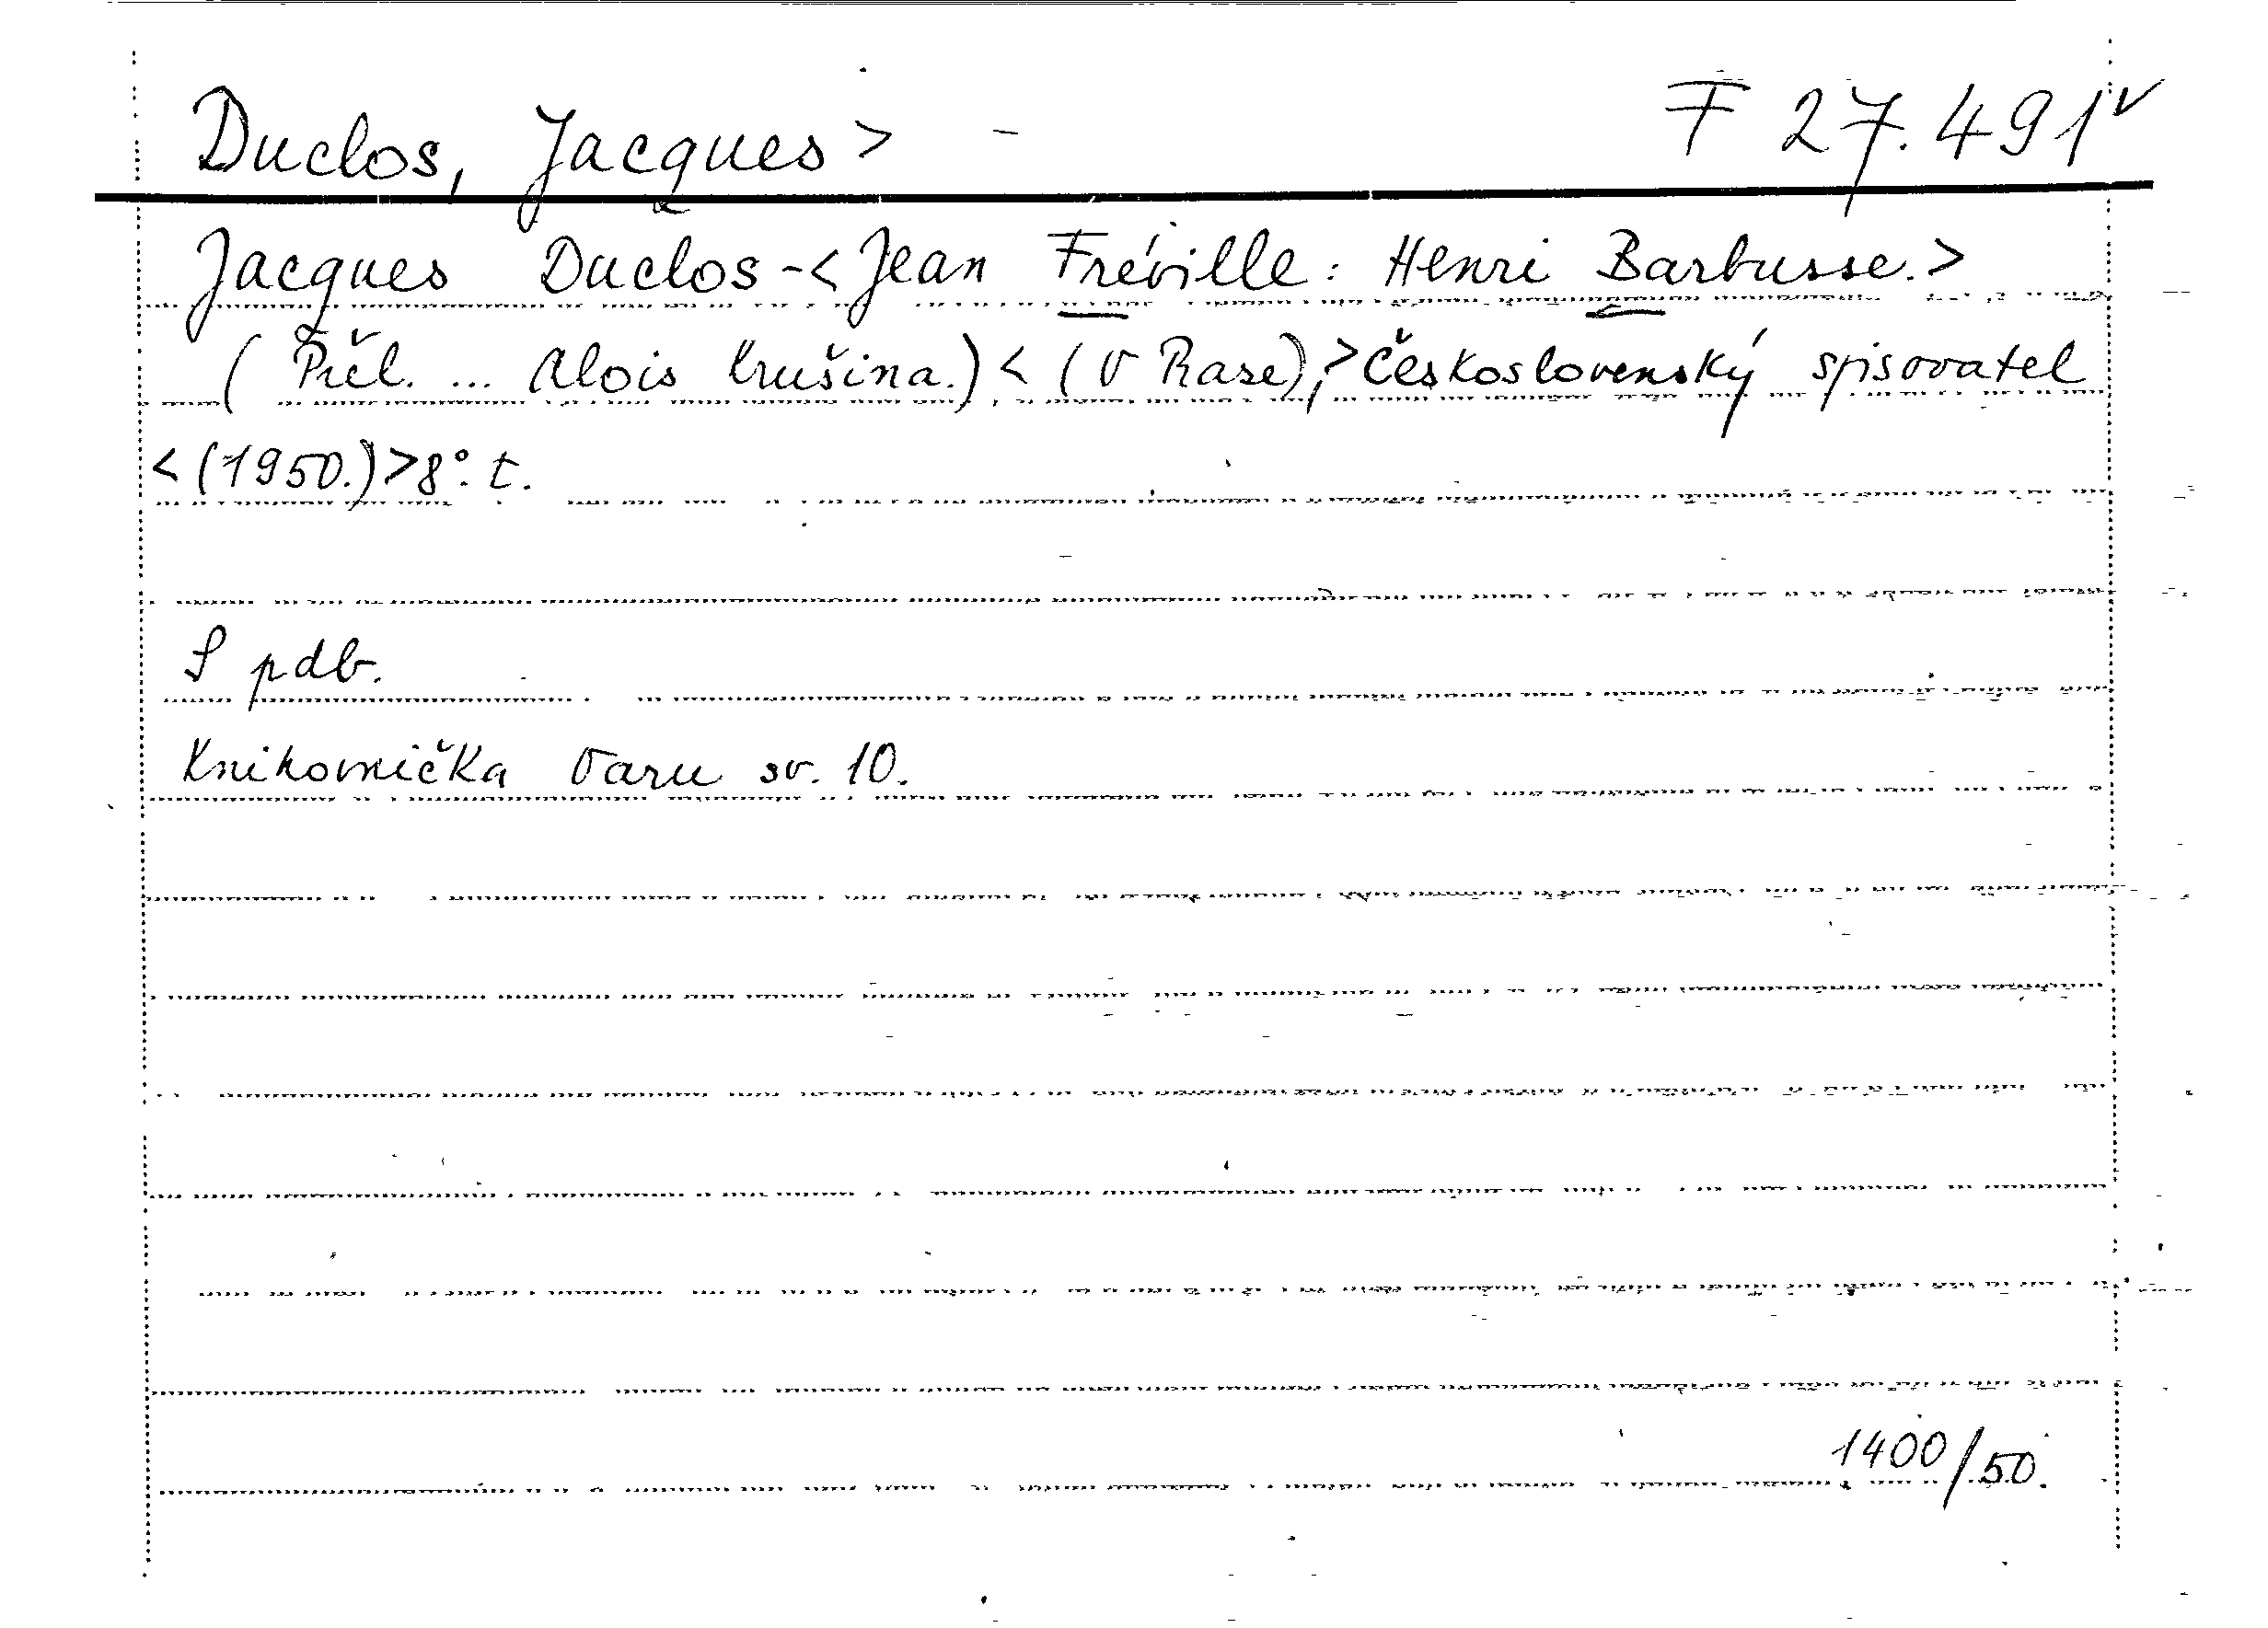 Duclos, Jacques> - F 27.491✓
Jacques Duclos -<Jean Fréville: Henri Barbusse.>
(Přel. ... Alois Krušina.) < (V Praze),> Československý spisovatel
<(1950.)>8°. t.
S pdb.
Knihovnička Varu sv. 10.
1400/50.